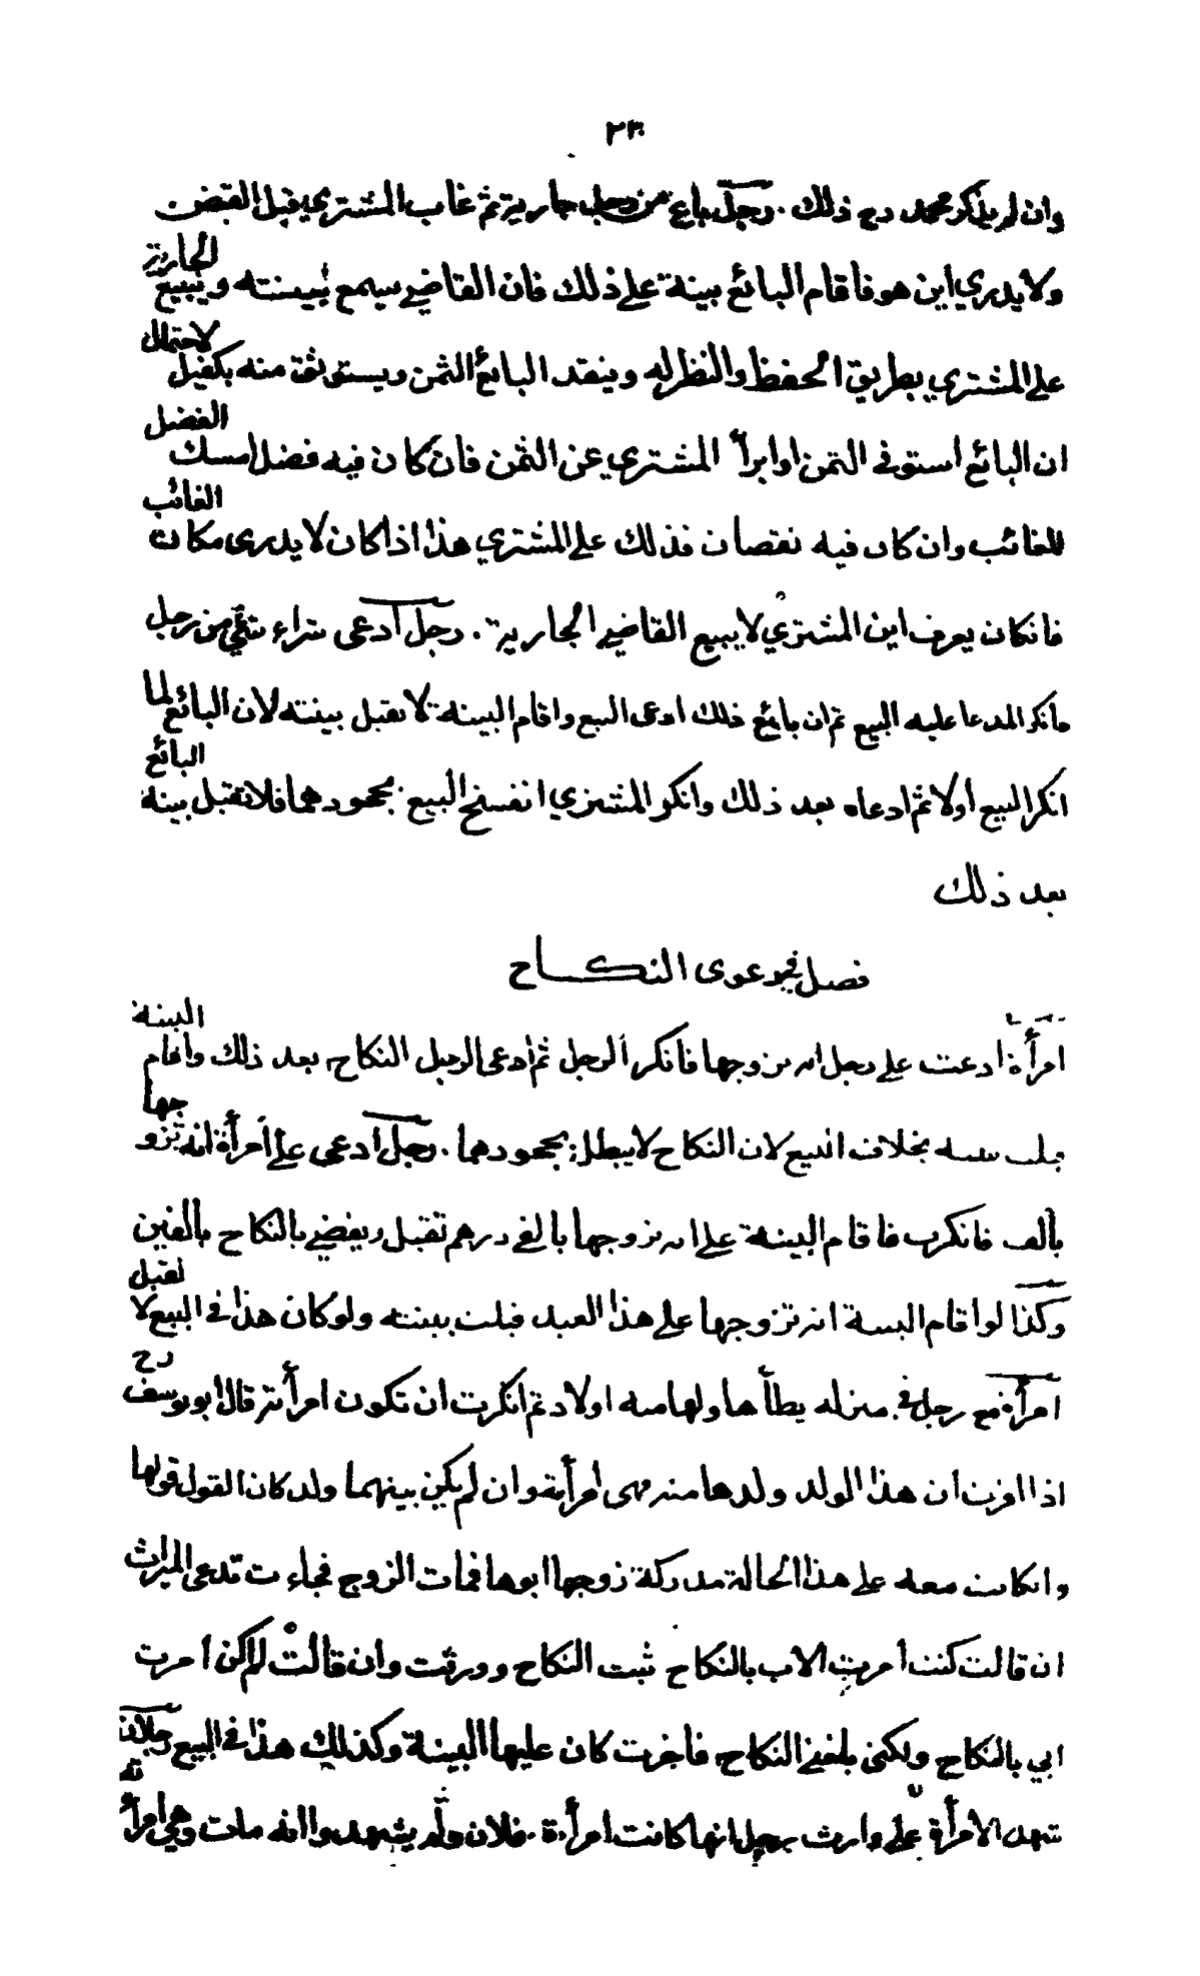 ٢٣٠
وان لم يذكر محمد رح ذلك . رجل باع من رجل جارية ثم غاب المشتري قبل القبض
ولا يدري اين هو فاقام البائع بينة على ذلك فان القاضي يسمع بينته ويبيع الجارية
على المشتري بطريق الحفظ والنظر له وينقد البائع الثمن ويستوثق منه بكفيل لاحتمال
ان البائع استوفى الثمن او ابرأ المشتري عن الثمن فان كان فيه فضل امسك الفضل
للغائب وان كان فيه نقصان فذلك على المشتري هذا اذا كان لا يدرى مكان الغائب
فانكان يعرف اين المشتري لا يبيع القاضي الجارية . رجل ادعى شراء شئ من رجل
فانكر المدعا عليه البيع ثم ان بائع ذلك ادعى البيع واقام البينة لا تقبل بينته لان البائع لما
انكر البيع اولا ثم ادعاه بعد ذلك وانكر المشتري انفسخ البيع بجحودهما فلا تقبل بينة البائع
بعد ذلك
فصل في دعوى النكاح
امرأة ادعت على رجل انه تزوجها فانكر الرجل ثم ادعى الرجل النكاح بعد ذلك واقام البينة
قبلت بينته بخلاف البيع لان النكاح لا يبطل بجحودهما . رجل ادعى على امرأة انه تزوجها
بألف فانكرت فاقام البينة على انه تزوجها بالفي درهم تقبل ويقضي بالنكاح بالفين
وكذا لو اقام البينة انه تزوجها على هذا العبد قبلت بينته ولو كان هذا في البيع لا تقبل
امرأة مع رجل في منزله يطأها ولها منه اولاد ثم انكرت ان تكون امرأته قال ابو يوسف رح
اذا اقرت ان هذا الولد ولدها منه فهى امرأته وان لم يكن بينهما ولد كان القول قولها
وانكانت معه على هذا الحالة مدركة زوجها ابوها فمات الزوج فجاءت تدعى الميراث
ان قالت كنت امرت الاب بالنكاح ثبت النكاح وورثت وان قالت لم اكن امرت
ابي بالنكاح ولكنى بلغني النكاح فاجزت كان عليها البينة وكذلك هذا في البيع رجلان
شهد الامرأة على وارث رجل انها كانت امرأة فلان ولم يشهدوا انه مات وهي امرأته